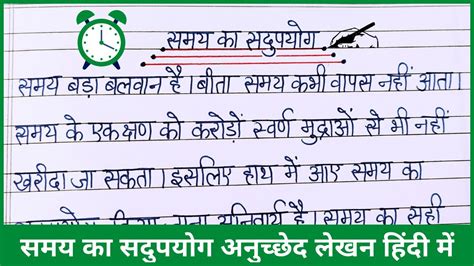 समय का सदुपयोग
समय बड़ा बलवान है। बीता समय कभी वापस नहीं आता।
समय के एक क्षण को करोड़ों स्वर्ण मुद्राओं से भी नहीं
खरीदा जा सकता। इसलिए हाथ में आए समय का
अनिवार्य है। समय का सही
समय का सदुपयोग अनुच्छेद लेखन हिंदी में